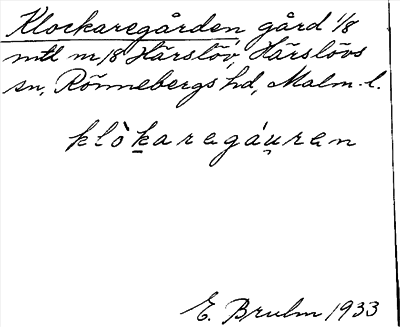 Klockaregården gård 1/8
mtl nr 18 Härslöv, Härslövs
sn, Rönnebergs hd, Malm. l.
klòkaregáuren
E. Bruhm 1933